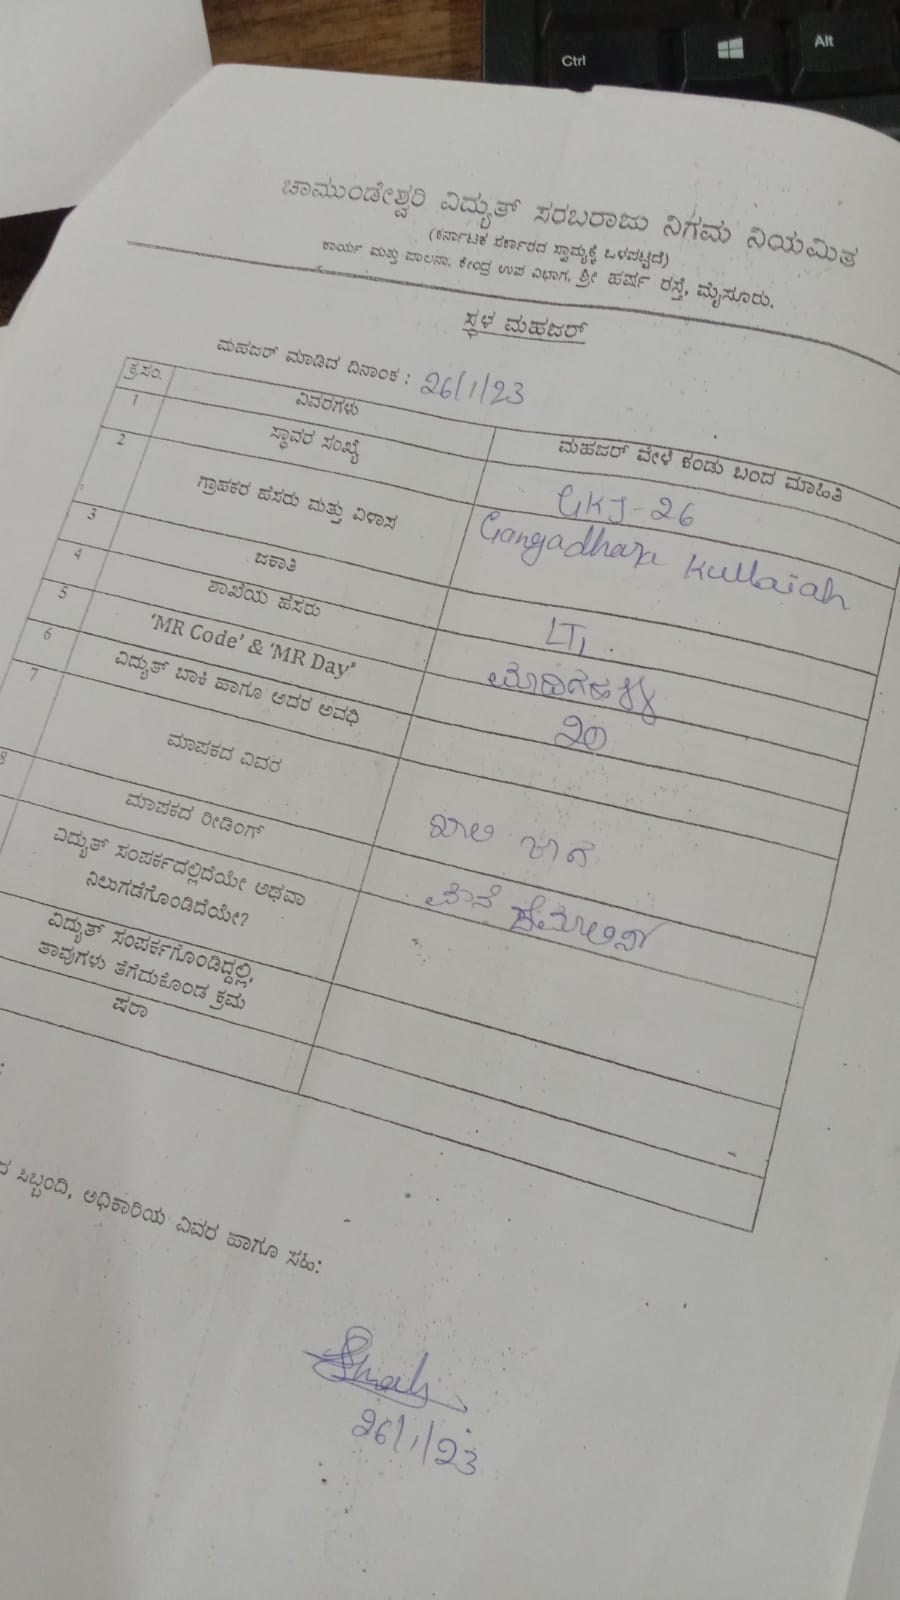 Ctrl
Alt
ಚಾಮುಂಡೇಶ್ವರಿ ವಿದ್ಯುತ್ ಸರಬರಾಜು ನಿಗಮ ನಿಯಮಿತ
(ಕರ್ನಾಟಕ ಸರ್ಕಾರದ ಸ್ವಾಮ್ಯಕ್ಕೆ ಒಳಪಟ್ಟಿದೆ)
ಕಾರ್ಯ ಮತ್ತು ಪಾಲನಾ, ಕೇಂದ್ರ ಉಪ ವಿಭಾಗ, ಶ್ರೀ ಹರ್ಷ ರಸ್ತೆ, ಮೈಸೂರು.
ಸ್ಥಳ ಮಹಜರ್
ಮಹಜರ್ ಮಾಡಿದ ದಿನಾಂಕ : 26/1/23
ಕ್ರ.ಸಂ. ವಿವರಗಳು ಮಹಜರ್ ವೇಳೆ ಕಂಡು ಬಂದ ಮಾಹಿತಿ
1 ಸ್ಥಾವರ ಸಂಖ್ಯೆ GKJ-26
2 ಗ್ರಾಹಕರ ಹೆಸರು ಮತ್ತು ವಿಳಾಸ Gangadhara Kullaiah
3 ಜಕಾತಿ LT1
4 ಶಾಖೆಯ ಹೆಸರು
5 'MR Code' & 'MR Day' 20
6 ವಿದ್ಯುತ್ ಬಾಕಿ ಹಾಗೂ ಅದರ ಅವಧಿ
7 ಮಾಪಕದ ವಿವರ ಖಾಲಿ ಜಾಗ
8 ಮಾಪಕದ ರೀಡಿಂಗ್ ಮನೆ
ವಿದ್ಯುತ್ ಸಂಪರ್ಕದಲ್ಲಿದೆಯೇ ಅಥವಾ
ನಿಲುಗಡೆಗೊಂಡಿದೆಯೇ?
ವಿದ್ಯುತ್ ಸಂಪರ್ಕಗೊಂಡಿದ್ದಲ್ಲಿ,
ತಾವುಗಳು ತೆಗೆದುಕೊಂಡ ಕ್ರಮ
ಷರಾ
ಸಿಬ್ಬಂದಿ, ಅಧಿಕಾರಿಯ ವಿವರ ಹಾಗೂ ಸಹಿ:
26/1/23